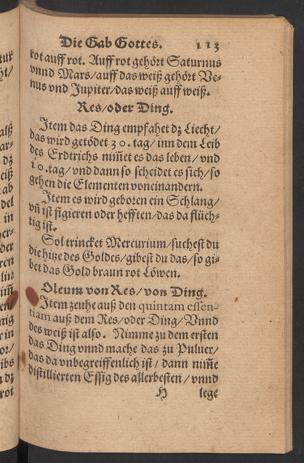 Die Gab Gottes. 113
rot auff rot. Auff rot gehört Saturnus
vnnd Mars/auff das weiß gehört Ve-
nus vnd Jupiter/das weiß auff weiß.
Res/oder Ding.
Item das Ding empfahet dz Liecht/
das wird getödet 30. tag/inn dem Leib
des Erdtrichs nim̃et es das leben/vnd
10. tag/vnd dann so scheidet es sich/so
gehen die Elementen voneinandern.
Item es wird geboren ein Schlang/
vñ ist figieren oder hefften/das da flüch-
tig ist.
Sol trincket Mercurium/suchest du
die hitze des Goldes/gibest du das/so gi-
bet das Gold braun rot Löwen.
Oleum von Res/von Ding.
Item zeuhe auß den quintam essen-
tiam auß dem Res/oder Ding/Vnnd
des weiß ist also. Nimme zu dem ersten
das Ding vnnd mache das zu Puluer/
das da vnbegreiffenlich ist/dann nim̃e
distillierten Essig des allerbesten/vnnd
H lege